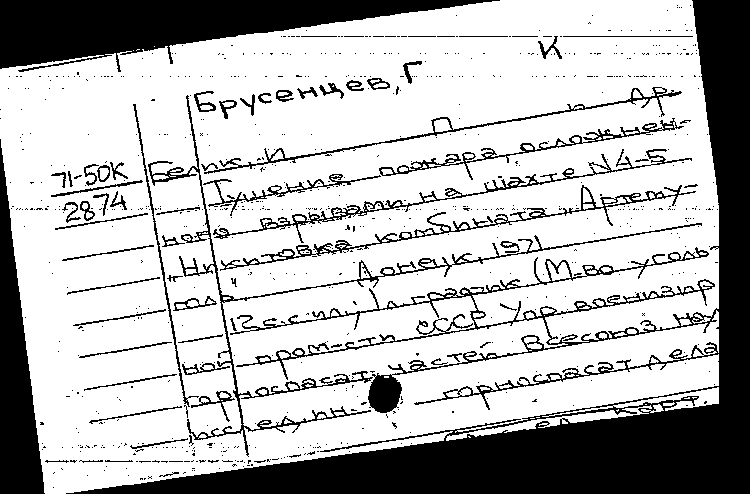 К
Брусенцев, Г
71-50К Белик, И. П и др.
2874 Тушение пожара, осложнен-
ного взрывами, на шахте N4-5
„Никитовка" комбината „Артему-
голь". Донецк, 1971
12 с. с ил.; 1 л. график (М-во уголь-
ной пром-сти СССР. Упр. военизир
горноспасат. частей. Всесоюз. науч
исслед. ин. горноспасат дела
карт.